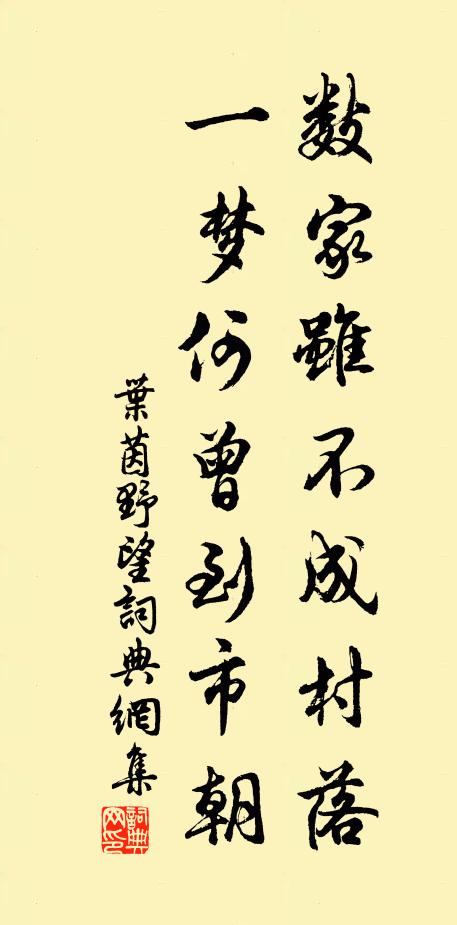 数家雖不成村落
一梦何曾到市朝
葉茵野望詞典網集
詞典网印